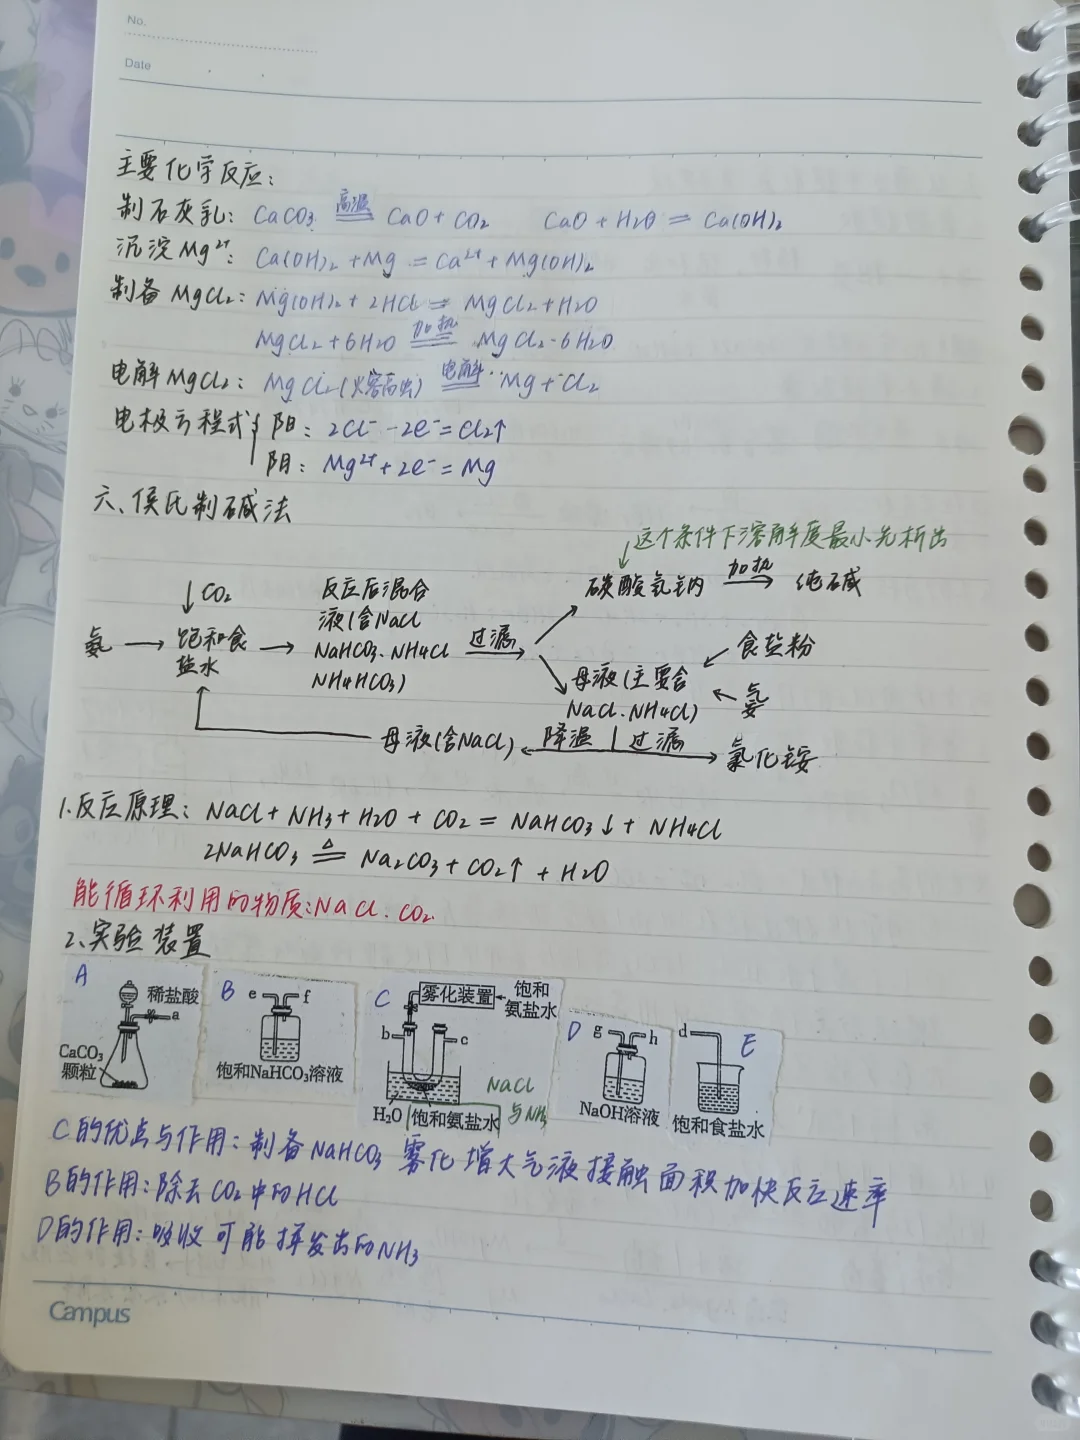 No.
Date
主要化学反应:
制石灰乳: CaCO₃ 高温 CaO + CO₂ CaO + H₂O = Ca(OH)₂
沉淀Mg²⁺: Ca(OH)₂ + Mg = Ca²⁺ + Mg(OH)₂
制备MgCl₂: Mg(OH)₂ + 2HCl = MgCl₂ + H₂O
MgCl₂ + 6H₂O 加热 MgCl₂·6H₂O
电解MgCl₂: MgCl₂(火容 电解 Mg + Cl₂
电极方程式{ 阳: 2Cl⁻ - 2e⁻ = Cl₂↑
阴: Mg²⁺ + 2e⁻ = Mg
六、侯氏制碱法
↓这个条件下溶解度最小先析出
碳酸氢钠 加热→ 纯碱
↓CO₂
反应后混合
液(含NaCl
NaHCO₃. NH₄Cl
NH₄HCO₃)
氨 → 饱和食
盐水 →
过滤→
食盐粉
母液(主要含
NaCl. NH₄Cl)
氨
母液(含NaCl) 降温 | 过滤 氯化铵
1.反应原理: NaCl + NH₃ + H₂O + CO₂ = NaHCO₃↓ + NH₄Cl
2NaHCO₃ △ Na₂CO₃ + CO₂↑ + H₂O
能循环利用的物质:NaCl. CO₂
2、实验装置
A 稀盐酸 a CaCO₃ 颗粒
B e f 饱和NaHCO₃溶液
C 雾化装置 饱和 氨盐水 b c H₂O 饱和氨盐水 NaCl 与NH₃
D g h NaOH溶液
d E 饱和食盐水
C的优点与作用: 制备NaHCO₃ 雾化增大气液接触面积加快反应速率
B的作用: 除去CO₂中的HCl
D的作用: 吸收可能挥发出的NH₃
Campus